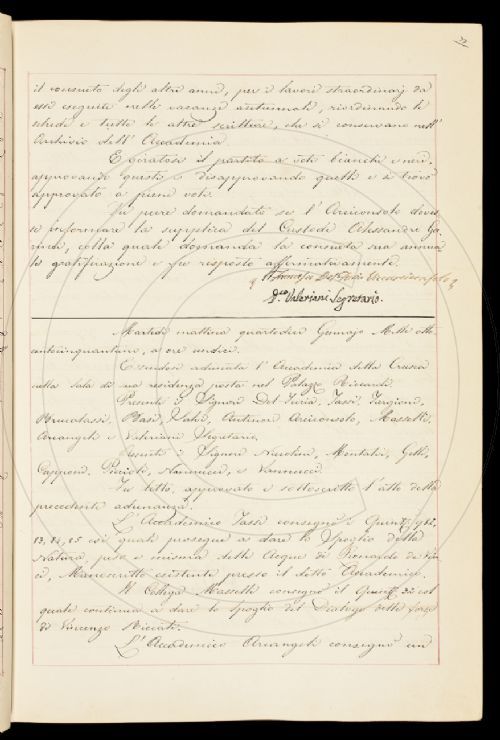 il consueto degli altri anni, per i lavori straordinarj da
essi eseguiti nelle vacanze autunnali, riordinando le
schede e tutte le altre scritture, che si conservano nell'
Archivio dell'Accademia.
E giratosi il partito a voti bianchi e neri,
approvando questi, e disapprovando quelli e si trovò
approvato a pieni voti.
Fu pure domandato se l'Arciconsolo dovesse
informare la supplica del Custode Alessandro
colla quale domanda la consueta sua annua
gratificazione e fu risposto affermativamente.
Del Furia
Valeriani Segretario.
Martedì mattina quattordici Gennajo Mille otto
centocinquantuno, a ore undici.
Essendosi adunata l'Accademia della Crusca
nella sala di sua residenza posta nel Palazzo Riccardi
Presenti i Signori Del Furia, Tassi, Targioni,
Brucalassi, Basi, Arciconsolo, Masselli,
Arcangeli e Valeriani Segretario,
Assenti i Signori Niccolini, Montalvi, Gelli,
Capponi, Nannucci, e Vannucci.
Fu letto, approvato e sottoscritto l'atto della
precedente adunanza.
L'Accademico Tassi consegnò i
13, 14, 15 coi quali prosegue a dare lo Spoglio della
Natura, peso e misura delle Acque di
Manoscritto esistente presso il detto Accademico.
Il Collega Masselli consegnò il col
quale continua a dare lo spoglio del Dialogo delle forze
di Vincenzo Riccati.
L'Accademico Arcangeli consegnò un